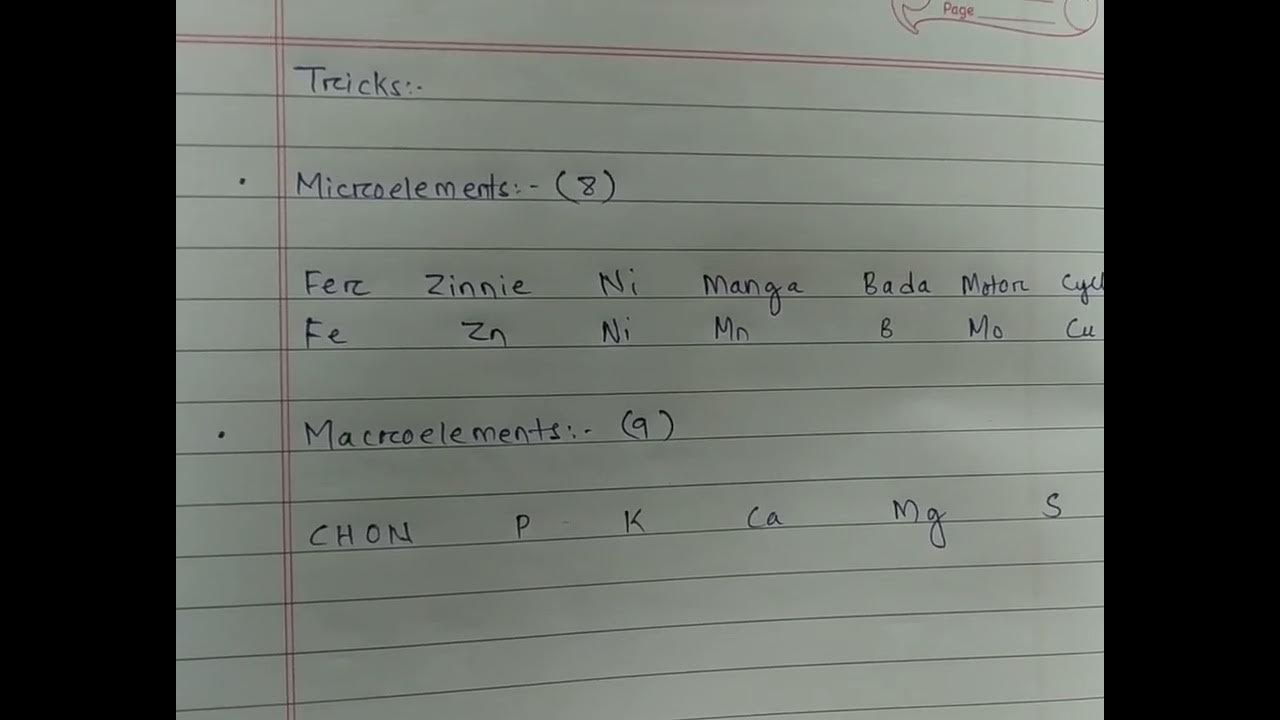 Page
Tricks:-
• Microelements:- (8)
Fer Zinnie Ni Manga Bada Motor Cycl
Fe Zn Ni Mn B Mo Cu
• Macroelements:- (9)
CHON P K Ca Mg S